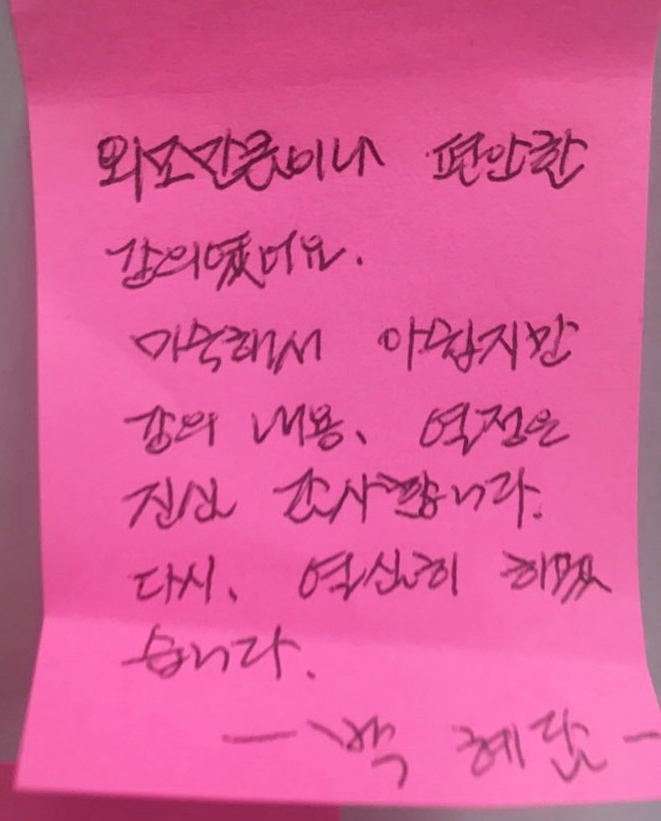 외모만큼이나 편안한
강의였어요.
미숙해서 아쉽지만
강의 내용、 열정은
진심 감사합니다.
다시、 열심히 하겠
습니다.
— 백 혜 —